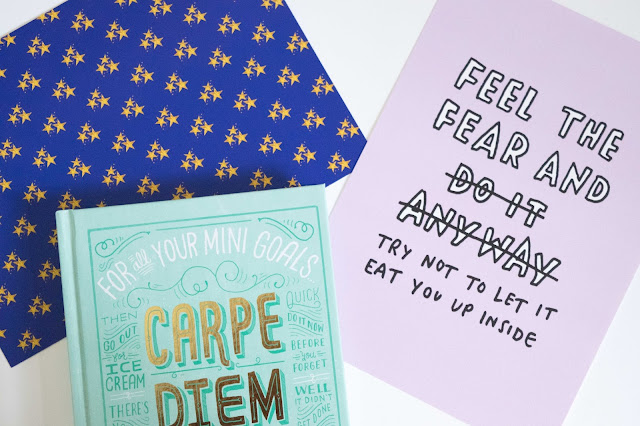 FEEL THE
FEAR AND
DO IT
ANYWAY
TRY NOT TO LET IT
EAT YOU UP INSIDE
FOR all YOUR MINI GOALS
THEN
GO OUT
for
ICE
CREAM
THERE'S
CARPE
DIEM
QUICK
DO IT NOW
BEFORE
you
FORGET
WELL
IT DIDN'T
GET DONE